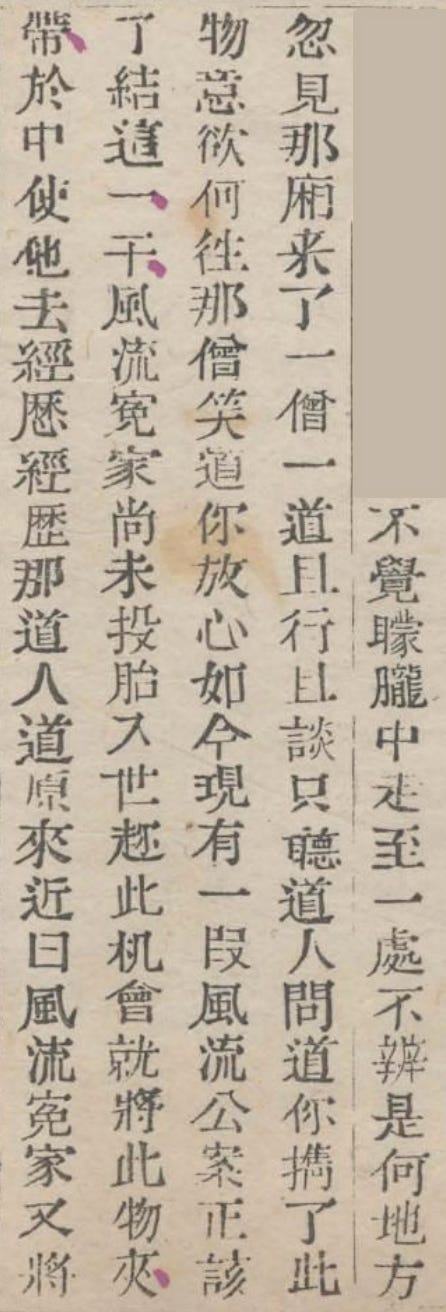 不覺矇朧中走至一處不辨是何地方
忽見那廂来了一僧一道且行且談只聽道人問道你擕了此
物意欲何徃那僧笑道你放心如今現有一叚風流公案正該
了結這一干風流寃家尚未投胎入世趂此机會就將此物夾
帶於中使他去經歷經歷那道人道原來近日風流寃家又將